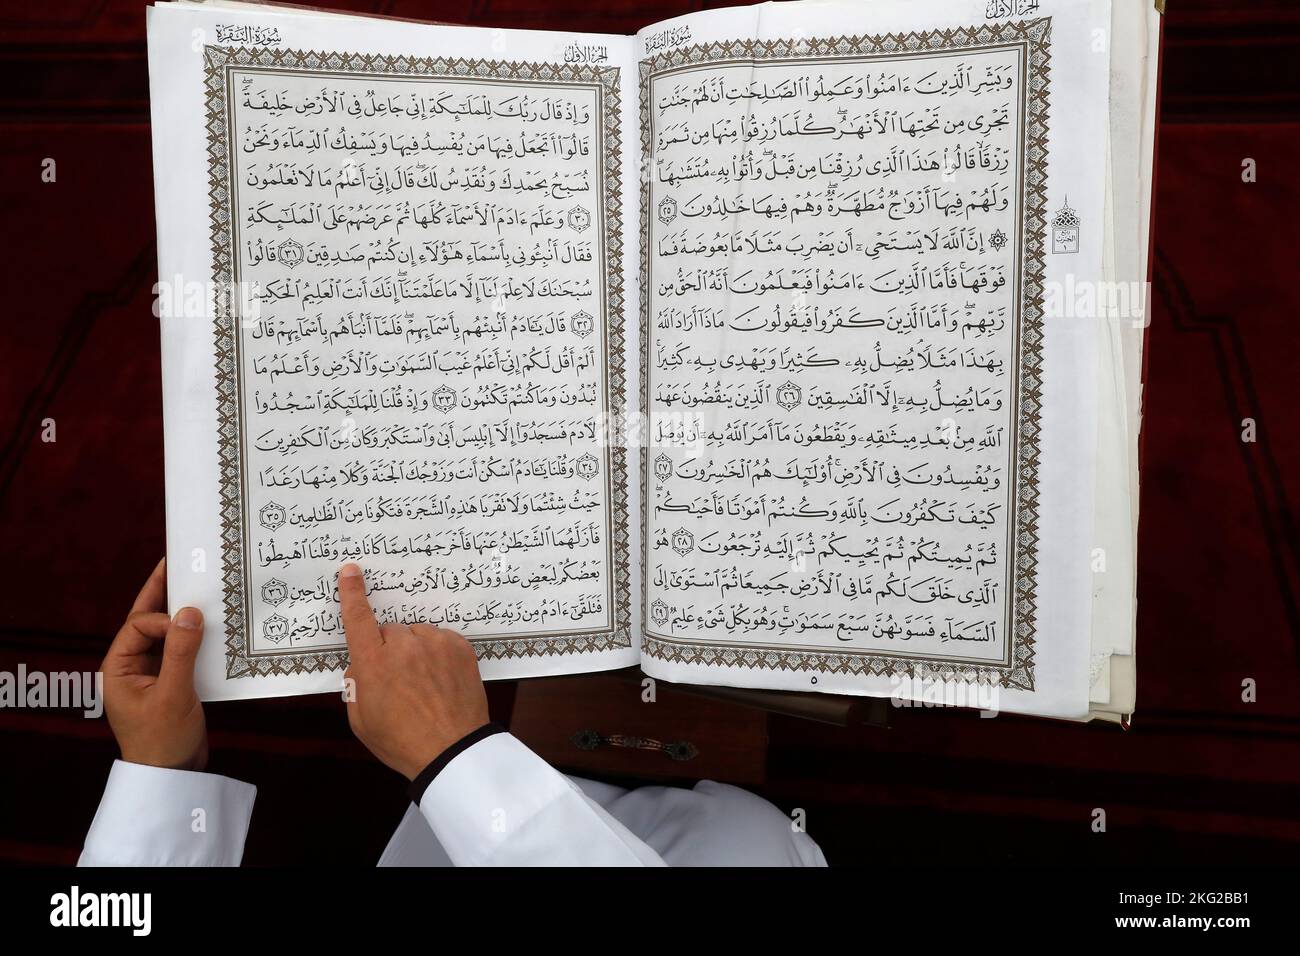 الجزء الأول
سورة البقرة
وَبَشِّرِ الَّذِينَ ءَامَنُوا وَعَمِلُوا الصَّالِحَاتِ أَنَّ لَهُمْ جَنَّاتٍ
تَجْرِي مِن تَحْتِهَا الْأَنْهَارُ كُلَّمَا رُزِقُوا مِنْهَا مِن ثَمَرَةٍ
رِّزْقًا قَالُوا هَٰذَا الَّذِي رُزِقْنَا مِن قَبْلُ وَأُتُوا بِهِ مُتَشَابِهًا
وَلَهُمْ فِيهَا أَزْوَاجٌ مُّطَهَّرَةٌ وَهُمْ فِيهَا خَالِدُونَ ٢٥
۞ إِنَّ اللَّهَ لَا يَسْتَحْيِي أَن يَضْرِبَ مَثَلًا مَّا بَعُوضَةً فَمَا
فَوْقَهَا فَأَمَّا الَّذِينَ ءَامَنُوا فَيَعْلَمُونَ أَنَّهُ الْحَقُّ مِن
رَّبِّهِمْ وَأَمَّا الَّذِينَ كَفَرُوا فَيَقُولُونَ مَاذَا أَرَادَ اللَّهُ
بِهَٰذَا مَثَلًا يُضِلُّ بِهِ كَثِيرًا وَيَهْدِي بِهِ كَثِيرًا
وَمَا يُضِلُّ بِهِ إِلَّا الْفَاسِقِينَ ٢٦ الَّذِينَ يَنقُضُونَ عَهْدَ
اللَّهِ مِنْ بَعْدِ مِيثَاقِهِ وَيَقْطَعُونَ مَا أَمَرَ اللَّهُ بِهِ أَن يُوصَلَ
وَيُفْسِدُونَ فِي الْأَرْضِ أُولَٰئِكَ هُمُ الْخَاسِرُونَ ٢٧
كَيْفَ تَكْفُرُونَ بِاللَّهِ وَكُنتُمْ أَمْوَاتًا فَأَحْيَاكُمْ
ثُمَّ يُمِيتُكُمْ ثُمَّ يُحْيِيكُمْ ثُمَّ إِلَيْهِ تُرْجَعُونَ ٢٨ هُوَ
الَّذِي خَلَقَ لَكُم مَّا فِي الْأَرْضِ جَمِيعًا ثُمَّ اسْتَوَىٰ إِلَى
السَّمَاءِ فَسَوَّاهُنَّ سَبْعَ سَمَاوَاتٍ وَهُوَ بِكُلِّ شَيْءٍ عَلِيمٌ ٢٩
٥
الجزء الأول
سورة البقرة
وَإِذْ قَالَ رَبُّكَ لِلْمَلَائِكَةِ إِنِّي جَاعِلٌ فِي الْأَرْضِ خَلِيفَةً
قَالُوا أَتَجْعَلُ فِيهَا مَن يُفْسِدُ فِيهَا وَيَسْفِكُ الدِّمَاءَ وَنَحْنُ
نُسَبِّحُ بِحَمْدِكَ وَنُقَدِّسُ لَكَ قَالَ إِنِّي أَعْلَمُ مَا لَا تَعْلَمُونَ
٣٠ وَعَلَّمَ ءَادَمَ الْأَسْمَاءَ كُلَّهَا ثُمَّ عَرَضَهُمْ عَلَى الْمَلَائِكَةِ
فَقَالَ أَنبِئُونِي بِأَسْمَاءِ هَٰؤُلَاءِ إِن كُنتُمْ صَادِقِينَ ٣١ قَالُوا
سُبْحَانَكَ لَا عِلْمَ لَنَا إِلَّا مَا عَلَّمْتَنَا إِنَّكَ أَنتَ الْعَلِيمُ الْحَكِيمُ
٣٢ قَالَ يَاآدَمُ أَنبِئْهُم بِأَسْمَائِهِمْ فَلَمَّا أَنبَأَهُم بِأَسْمَائِهِمْ قَالَ
أَلَمْ أَقُل لَّكُمْ إِنِّي أَعْلَمُ غَيْبَ السَّمَاوَاتِ وَالْأَرْضِ وَأَعْلَمُ مَا
تُبْدُونَ وَمَا كُنتُمْ تَكْتُمُونَ ٣٣ وَإِذْ قُلْنَا لِلْمَلَائِكَةِ اسْجُدُوا
لِآدَمَ فَسَجَدُوا إِلَّا إِبْلِيسَ أَبَىٰ وَاسْتَكْبَرَ وَكَانَ مِنَ الْكَافِرِينَ
٣٤ وَقُلْنَا يَاآدَمُ اسْكُنْ أَنتَ وَزَوْجُكَ الْجَنَّةَ وَكُلَا مِنْهَا رَغَدًا
حَيْثُ شِئْتُمَا وَلَا تَقْرَبَا هَٰذِهِ الشَّجَرَةَ فَتَكُونَا مِنَ الظَّالِمِينَ ٣٥
فَأَزَلَّهُمَا الشَّيْطَانُ عَنْهَا فَأَخْرَجَهُمَا مِمَّا كَانَا فِيهِ وَقُلْنَا اهْبِطُوا
بَعْضُكُمْ لِبَعْضٍ عَدُوٌّ وَلَكُمْ فِي الْأَرْضِ مُسْتَقَرٌّ إِلَىٰ حِينٍ ٣٦
فَتَلَقَّىٰ ءَادَمُ مِن رَّبِّهِ كَلِمَاتٍ فَتَابَ عَلَيْهِ الرَّحِيمُ ٣٧
alamy
Image ID: 2KG2BB1
www.alamy.com